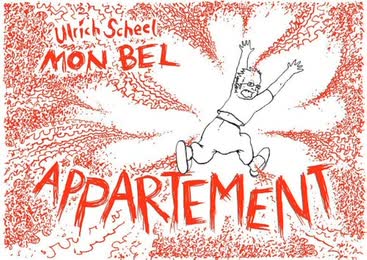 Ulrich Scheel
MON BEL
APPARTEMENT